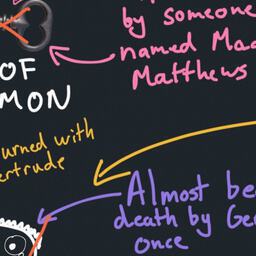 by someone
named Mad
Matthews
OF
MON
urned with
ertrude
Almost be
death by Ge
once